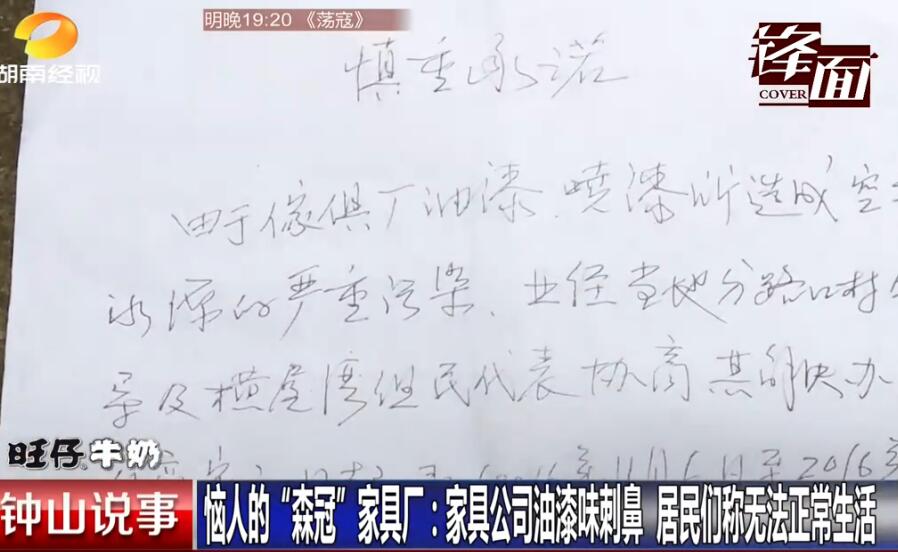 明晚19:20 《荡寇》
湖南经视
锋面
COVER
慎重承诺
由于傢俱厂油漆、喷漆所造成空
水源的严重污染、业经当地分路口村
导及横屋湾组民代表协商其解决办
年11月6日至2016年
旺仔牛奶
钟山说事
恼人的“森冠”家具厂：家具公司油漆味刺鼻 居民们称无法正常生活